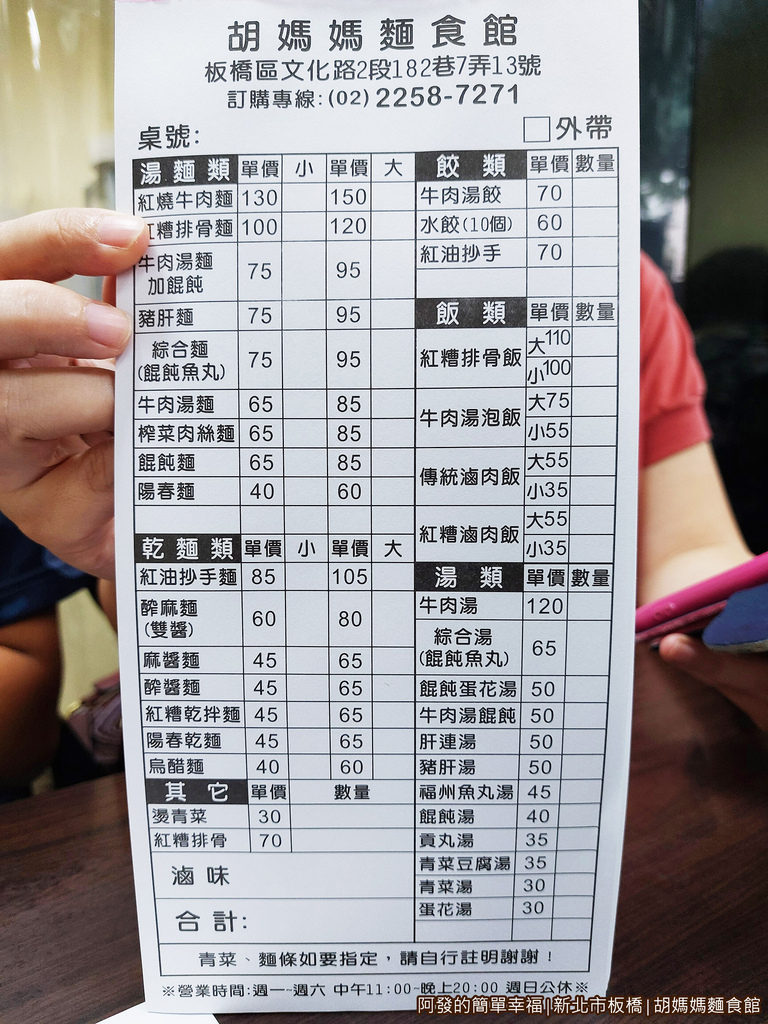 胡媽媽麵食館
板橋區文化路2段182巷7弄13號
訂購專線:(02) 2258-7271
桌號: □外帶
湯麵類 單價 小 單價 大
紅燒牛肉麵 130 150
紅糟排骨麵 100 120
牛肉湯麵
加餛飩 75 95
豬肝麵 75 95
綜合麵
(餛飩魚丸) 75 95
牛肉湯麵 65 85
榨菜肉絲麵 65 85
餛飩麵 65 85
陽春麵 40 60
乾麵類 單價 小 單價 大
紅油抄手麵 85 105
醡麻麵
(雙醬) 60 80
麻醬麵 45 65
醡醬麵 45 65
紅糟乾拌麵 45 65
陽春乾麵 45 65
烏醋麵 40 60
其它 單價 數量
燙青菜 30
紅糟排骨 70
滷味
合計:
餃類 單價 數量
牛肉湯餃 70
水餃(10個) 60
紅油抄手 70
飯類 單價 數量
紅糟排骨飯 大110
小100
牛肉湯泡飯 大75
小55
傳統滷肉飯 大55
小35
紅糟滷肉飯 大55
小35
湯類 單價 數量
牛肉湯 120
綜合湯
(餛飩魚丸) 65
餛飩蛋花湯 50
牛肉湯餛飩 50
肝連湯 50
豬肝湯 50
福州魚丸湯 45
餛飩湯 40
貢丸湯 35
青菜豆腐湯 35
青菜湯 30
蛋花湯 30
青菜、麵條如要指定，請自行註明謝謝！
※營業時間:週一~週六 中午11:00~晚上20:00 週日公休※
阿發的簡單幸福|新北市板橋|胡媽媽麵食館